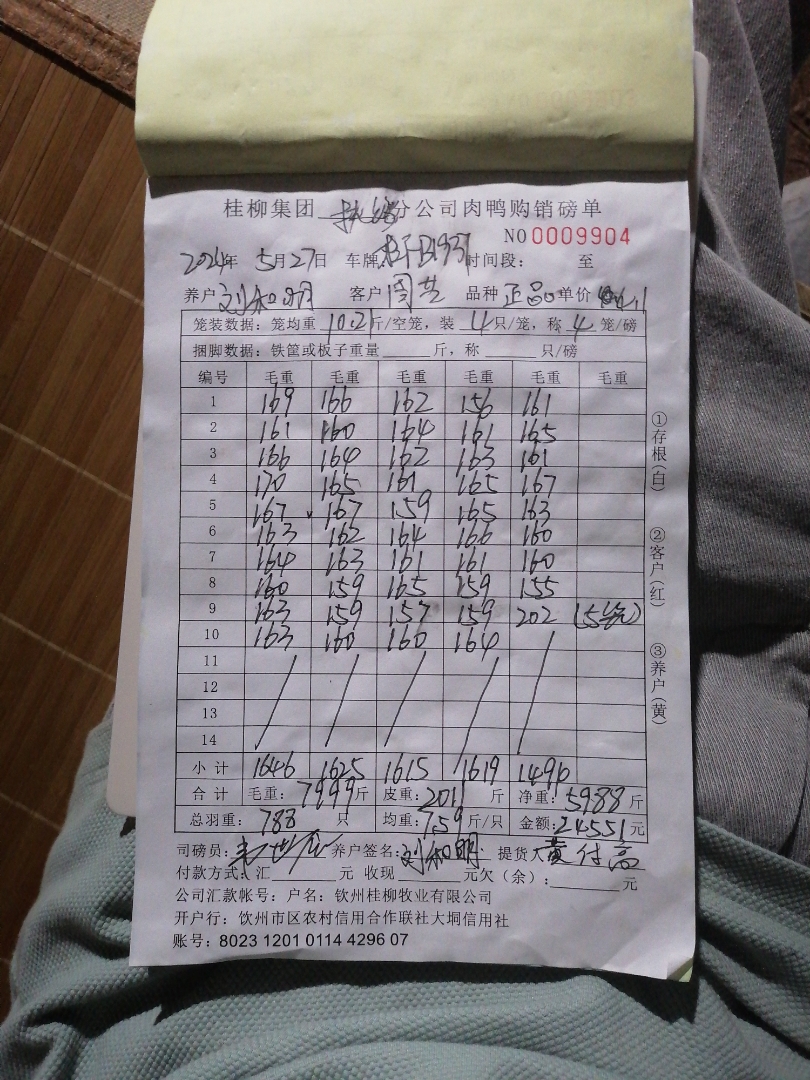 桂柳集团 分公司肉鸭购销磅单
NO 0009904
2024年 5月27日 车牌 时间段: 至
养户 刘和明 客户 周 品种 正品 单价
笼装数据: 笼均重 10.21 斤/空笼, 装 4 只/笼, 称 4 笼/磅
捆脚数据: 铁筐或板子重量 斤, 称 只/磅
编号 毛重 毛重 毛重 毛重 毛重 毛重
1 169 166 162 156 161
2 161 160 164 161 165
3 166 164 162 163 161
4 170 165 161 165 167
5 167 167 159 165 163
6 163 162 164 166 160
7 164 163 161 161 160
8 160 159 165 159 155
9 163 159 157 159 202 (5笼)
10 163 160 160 164
11
12
13
14
小计 1646 1625 1615 1619 1494
合计 毛重: 7999斤 皮重: 2011 斤 净重: 5988 斤
总羽重: 788 只 均重: 7.59 斤/只 金额: 24551 元
司磅员: 养户签名: 刘和明 提货人 黄付高
付款方式: 汇 元 收现 元欠(余): 元
公司汇款帐号: 户名: 钦州桂柳牧业有限公司
开户行: 钦州市区农村信用合作联社大垌信用社
账号: 8023 1201 0114 4296 07
①存根(白)
②客户(红)
③养户(黄)